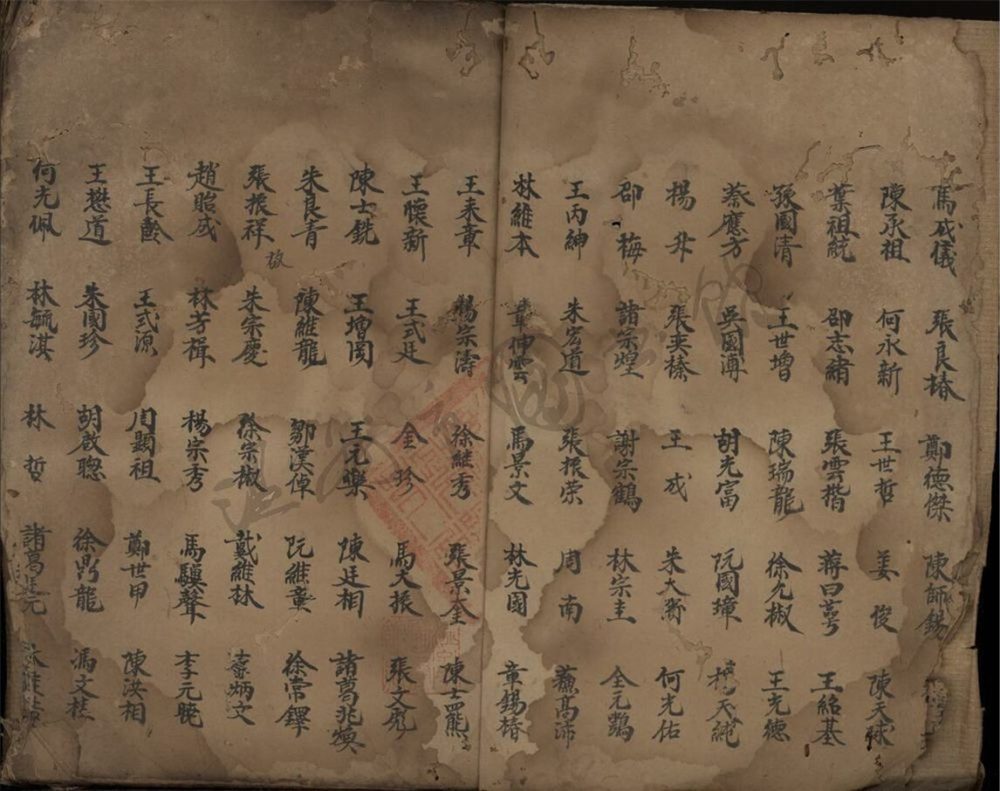 馬成儀 張良椿 鄭德傑 陳師錫
陳承祖 何永新 王世哲 姜俊 陳天球
葉祖統 邵志綃 張雲揩 蔣曰萼 王紹基
孫國清 王世增 陳瑞龍 徐允椒 王光德
蔡應方 吳國溥 胡光富 阮國璋 楊天純
楊升 張來榛 王成 朱大衡 何光佑
邵梅 諸宗煌 謝宗鶴 林宗圭 全元鸚
王丙紳 朱宏道 張振荣 周南 蘇高沛
林維本 章伸雲 馬景文 林光國 章錫椿
王來章 楊宗濤 徐継秀 張景全 陳士羆
王懷新 王式廷 金珍 馬大振 張文彪
陳士銑 王增閎 王元樂 陳廷相 諸葛兆煥
朱良青 陳維龍 鄒漢倬 阮維章 徐常鐸
張振祥 朱宗慶 徐宗椒 戴維林 炳文
椒
趙貽成 林芳楫 楊宗秀 馬驥聲 李元曉
王長齡 王式源 周顯祖 鄭世甲 陳洪相
王懋道 朱國珍 胡啟聰 徐鼎龍 馮文桂
何光佩 林毓淇 林哲 諸葛 元